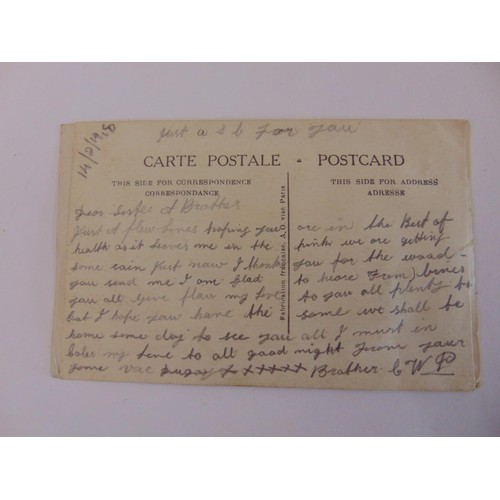 14/2/1918
Just a S b For you
CARTE POSTALE - POSTCARD
THIS SIDE FOR CORRESPONDENCE
CORRESPONDANCE
THIS SIDE FOR ADDRESS
ADRESSE
Fabrication française, A.D. visé Paris
Dear Sister & Brother
Just A few lines hoping you are in the Best of
health as it leaves me in the pink we are getting
some rain Just now I thank you for the
you send me I am glad to hear From
you all Give my Love to you all plenty
but I hope you have the some we shall be
home some day to see you all I must
my to all good night From your
vac x x xxxxx Brother C W P